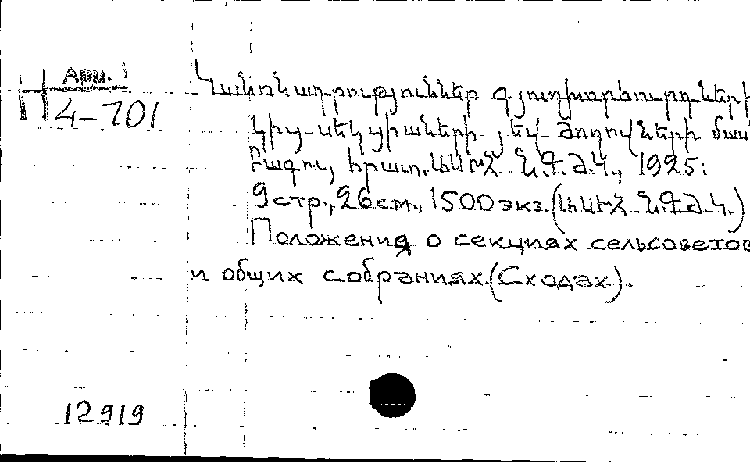 Арм.
П
4-701
Կանոնադրություններ գյուղխորհուրդների
կից սեկցիաների յեվ ժողովների մաս
Բագու, հրատ. ԱՍՐՀ Ն.Գ.Ժ.Կ., 1925:
9 стр., 26 см., 1500 экз. (ԱՍՐՀ Ն.Գ.Ժ.Կ.)
Положения о секциях сельсоветов
и общих собраниях (Сходах).
12919